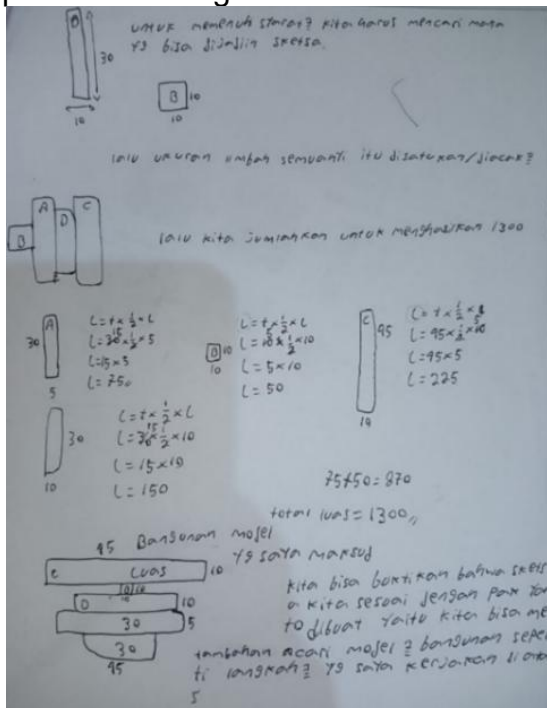 D
untuk memenuhi syarat2 kita harus mencari mana
30
yg bisa dijadiin sketsa.
B 10
10
10
lalu ukuran semuanti itu disatukan/diacak2
A D C
B
lalu kita jumlahkan untuk menghasilkan 1300
A
30
5
L = t x 1/2 x L
L = 30 x 1/2 x 5
L = 15 x 5
L = 750
B 10
10
L = t x 1/2 x L
L = 10 x 1/2 x 10
L = 5 x 10
L = 50
C
45
10
L = t x 1/2 x
L = 45 x 1/2 x 10
L = 45 x 5
L = 225
30
10
L = t x 1/2 x L
L = 30 x 1/2 x 10
L = 15 x 10
L = 150
75+50 = 870
total luas = 1300,,
Bangunan model
yg saya maksud
45
C Luas 10
10 10
D 10
30 5
30
45
kita bisa buktikan bahwa skets
a kita sesuai dengan pak
to dibuat yaitu kita bisa me
tambahan acari model2 bangunan sepe
ti langkah2 yg saya kerjakan di
5